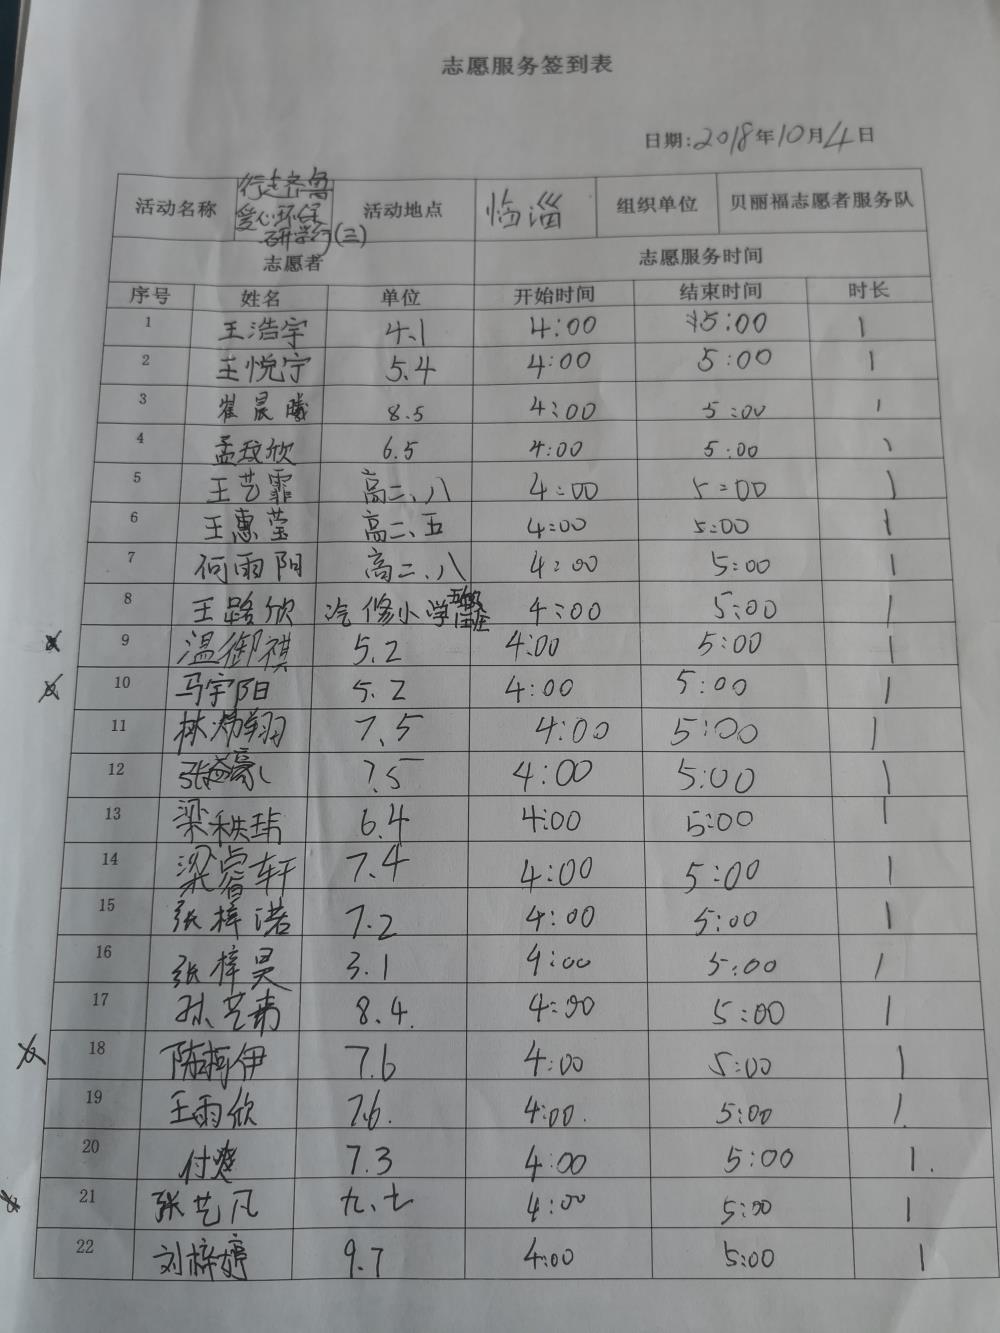 志愿服务签到表
日期:2018年10月4日
活动名称 行走齐鲁爱心环保研学行(三) 活动地点 临淄 组织单位 贝丽福志愿者服务队
志愿者 志愿服务时间
序号 姓名 单位 开始时间 结束时间 时长
1 王浩宇 4.1 4:00 5:00 1
2 王悦宁 5.4 4:00 5:00 1
3 崔晨曦 8.5 4:00 5:00 1
4 孟玟欣 6.5 4:00 5:00 1
5 王艺霏 高二、八 4:00 5:00 1
6 王惠莹 高二、五 4:00 5:00 1
7 何雨阳 高二、八 4:00 5:00 1
8 王路欣 汽修小学 4:00 5:00 1
9 温御祺 5.2 4:00 5:00 1
10 马宇阳 5.2 4:00 5:00 1
11 林炜翔 7.5 4:00 5:00 1
12 张益豪 7.5 4:00 5:00 1
13 梁秩玮 6.4 4:00 5:00 1
14 梁睿轩 7.4 4:00 5:00 1
15 张梓诺 7.2 4:00 5:00 1
16 张梓昊 3.1 4:00 5:00 1
17 孙艺 8.4. 4:00 5:00 1
18 陈柯伊 7.6 4:00 5:00 1
19 王雨欣 7.6. 4:00. 5:00 1.
20 付 7.3 4:00 5:00 1.
21 张艺凡 九、七 4:00 5:00 1
22 刘梓婷 9.7 4:00 5:00 1